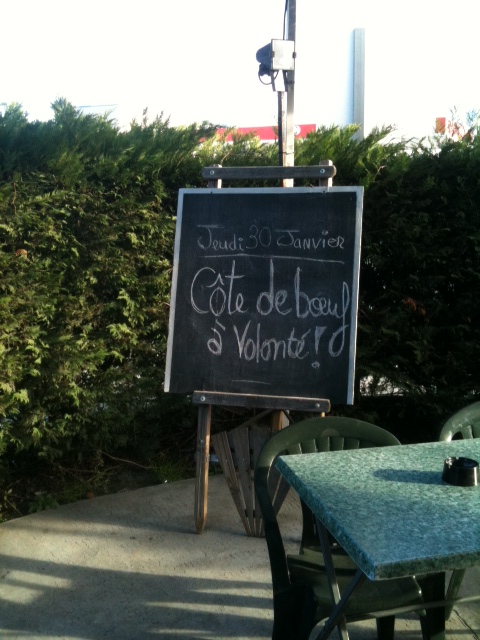 Jeudi 30 Janvier
Côte de bœuf
à Volonté!